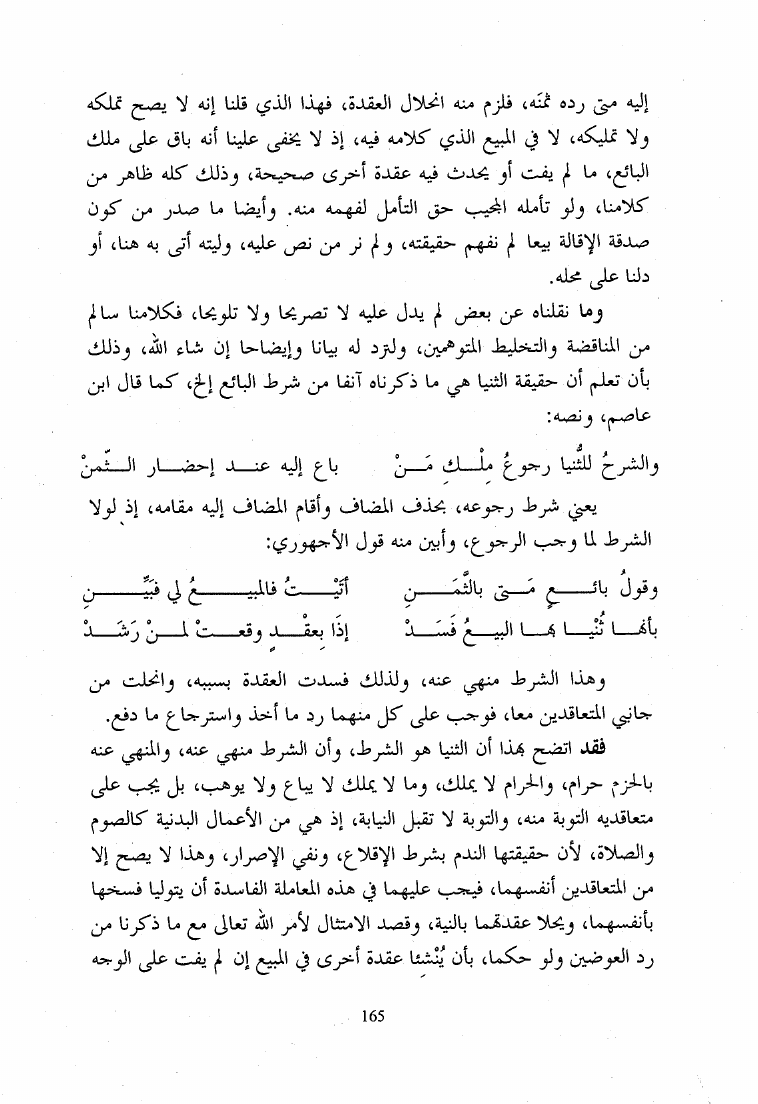 إليه متى رده ثمَنَه، فلزم منه انحلال العقدة، فهذا الذي قلنا إنه لا يصح تملكه
ولا تمليكه، لا في المبيع الذي كلامه فيه، إذ لا يخفى علينا أنه باق على ملك
البائع، ما لم يفت أو يحدث فيه عقدة أخرى صحيحة، وذلك كله ظاهر من
كلامنا، ولو تأمله المجيب حق التأمل لفهمه منه. وأيضا ما صدر من كون
صدقة الإقالة بيعا لم نفهم حقيقته، ولم نر من نص عليه، وليته أتى به هنا، أو
دلنا على محله.
وما نقلناه عن بعض لم يدل عليه لا تصريحا ولا تلويحا، فكلامنا سالم
من المناقضة والتخليط المتوهمين، ولنزد له بيانا وإيضاحا إن شاء الله، وذلك
بأن تعلم أن حقيقة الثنيا هي ما ذكرناه آنفا من شرط البائع إلخ، كما قال ابن
عاصم، ونصه:
والشرحُ للثُّنيا رجوعُ ملْـــك مَـــنْ باع إليه عنـــد إحضـــار الـــثَّمنْ
يعني شرط رجوعه، بحذف المضاف وأقام المضاف إليه مقامه، إذ لولا
الشرط لما وجب الرجوع، وأبين منه قول الأجهوري:
وقولُ بائـــعٍ مَـــتى بالثَّمَـــنِ أتَيْـــتُ فالمبيـــعُ لي فَبَيِّـــنِ
بأنهـــا ثُنْيـــا بهـــا البيـــعُ فَسَـــدْ إذَا بعقْـــدٍ وقعـــتْ لمـــنْ رَشَـــدْ
وهذا الشرط منهي عنه، ولذلك فسدت العقدة بسببه، وانحلت من
جانبي المتعاقدين معا، فوجب على كل منهما رد ما أخذ واسترجاع ما دفع.
فقد اتضح بهذا أن الثنيا هو الشرط، وأن الشرط منهي عنه، والمنهي عنه
بالحزم حرام، والحرام لا يملك، وما لا يملك لا يباع ولا يوهب، بل يجب على
متعاقديه التوبة منه، والتوبة لا تقبل النيابة، إذ هي من الأعمال البدنية كالصوم
والصلاة، لأن حقيقتها الندم بشرط الإقلاع، ونفي الإصرار، وهذا لا يصح إلا
من المتعاقدين أنفسهما، فيجب عليهما في هذه المعاملة الفاسدة أن يتوليا فسخها
بأنفسهما، ويحلا عقدتهما بالنية، وقصد الامتثال لأمر الله تعالى مع ما ذكرنا من
رد العوضين ولو حكما، بأن يُنْشِئا عقدة أخرى في المبيع إن لم يفت على الوجه
165